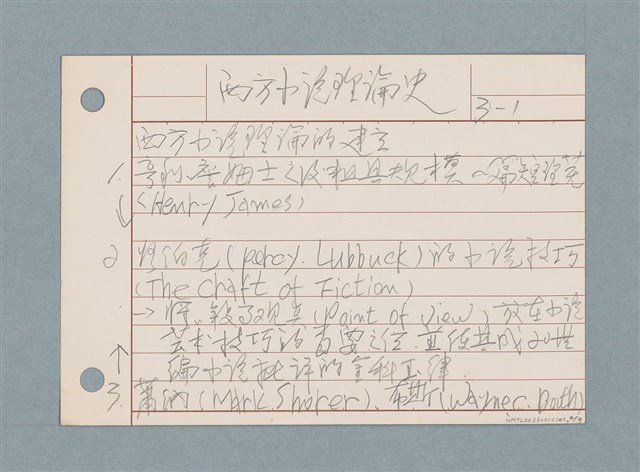 西方小说理論史
3-1
西方小说理論的建立
1. 亨利詹姆士之後粗具規模
(Henry James)
2 (Percy. Lubbuck) 的小说技巧
(The Chaft of Fiction)
→ 將 叙了观点 (Point of View) 放在小说
芸术技巧的首要之位. 並使其成20世
小说批评的金科玉律.
3. 蕭洛 (Mark. Shorer)、布斯 (Wayne c. Booth)